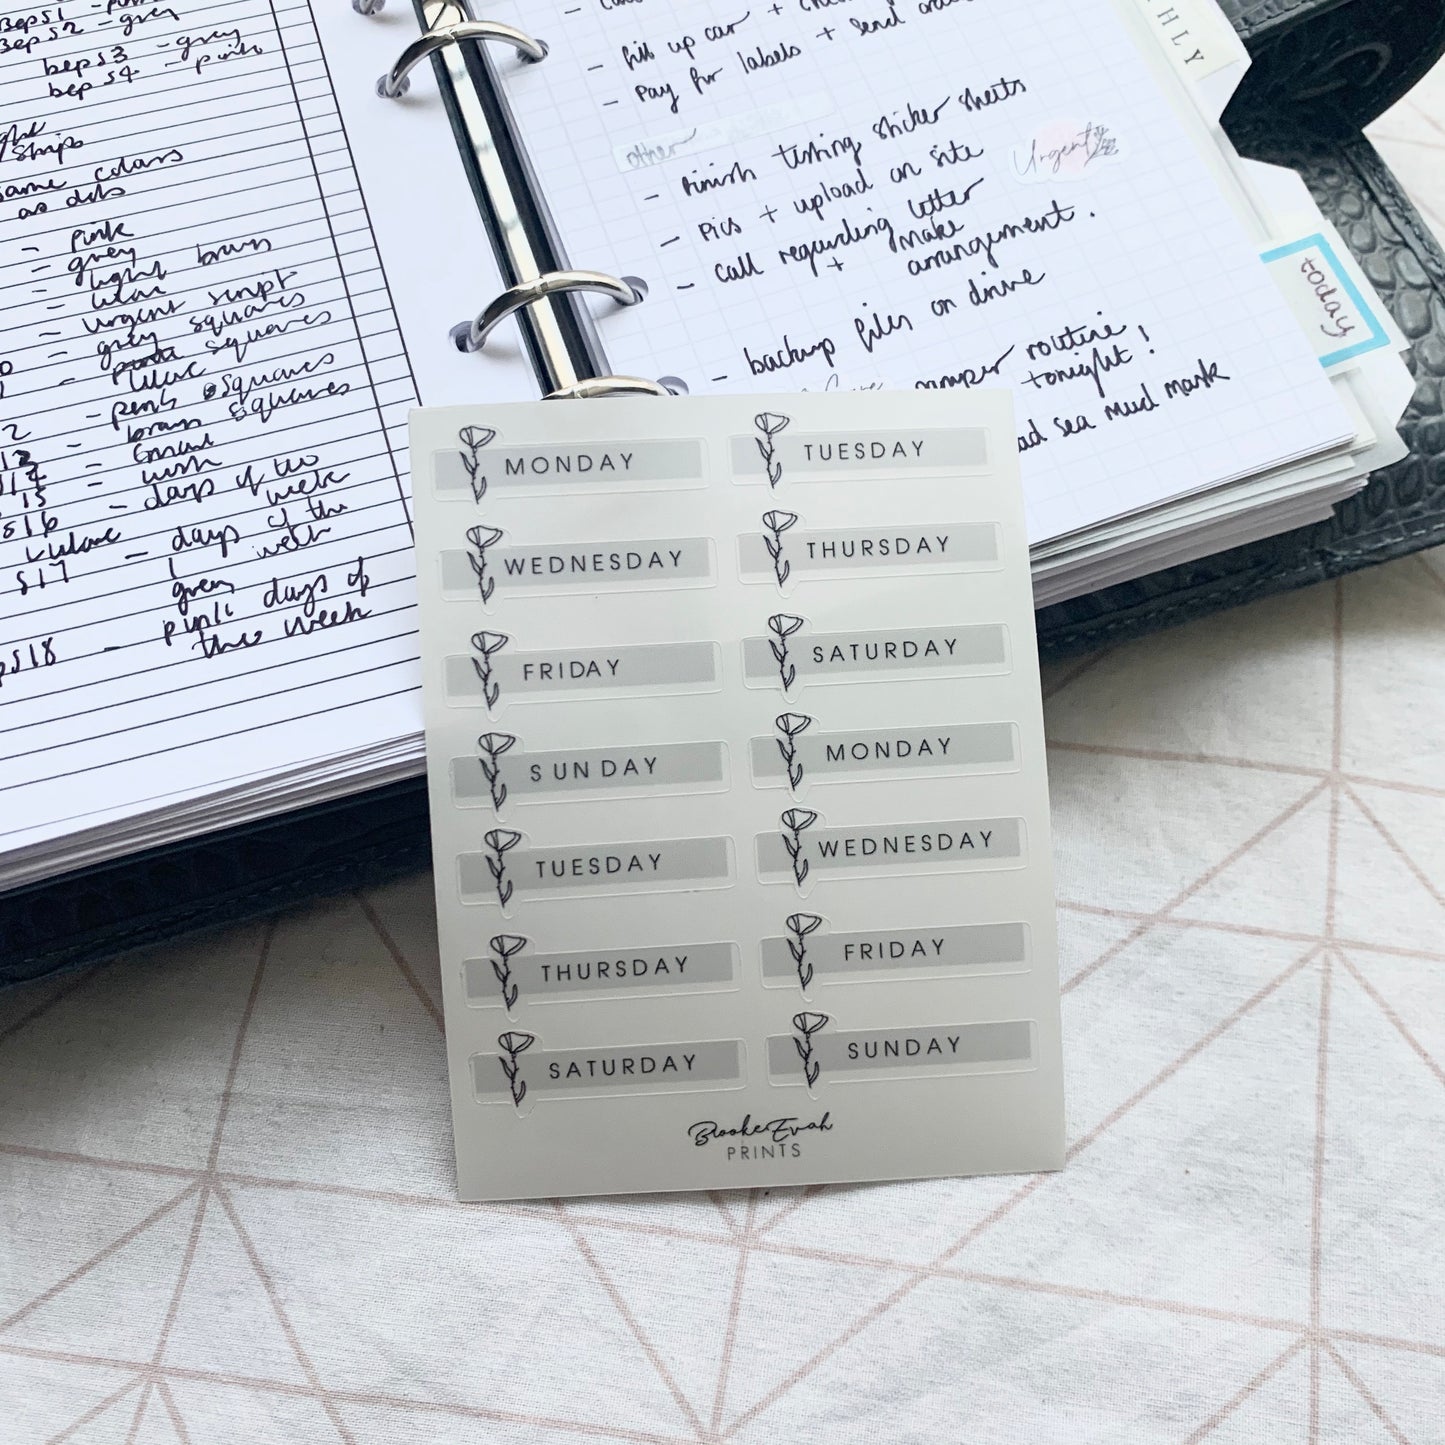 beps1 - pink
beps2 - grey
beps3 - grey
beps4 - pink
strips
same colors
as dots
- pink
- grey
- light brown
- lilac
- urgent script
- grey squares
- lilac squares
- pink squares
- brown squares
- Email
- wish
- days of the
week
- days of the
week
grey
ps18 - pink days of
the week
- fill up car +
- Pay for labels + send
other
- Finish testing sticker sheets
- Pics + upload on site
Urgent
- call regarding letter
+ make
arrangement.
- backup files on drive
pamper routine
tonight!
sea mud mask
HLY
today
MONDAY
TUESDAY
WEDNESDAY
THURSDAY
FRIDAY
SATURDAY
SUNDAY
MONDAY
TUESDAY
WEDNESDAY
THURSDAY
FRIDAY
SATURDAY
SUNDAY
BrookeEvah
PRINTS